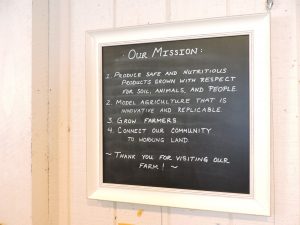 OUR MISSION:
1. PRODUCE SAFE AND NUTRITIOUS
PRODUCTS GROWN WITH RESPECT
FOR SOIL, ANIMALS, AND PEOPLE.
2. MODEL AGRICULTURE THAT IS
INNOVATIVE AND REPLICABLE.
3. GROW FARMERS
4. CONNECT OUR COMMUNITY
TO WORKING LAND.
~ THANK YOU FOR VISITING OUR
FARM! ~